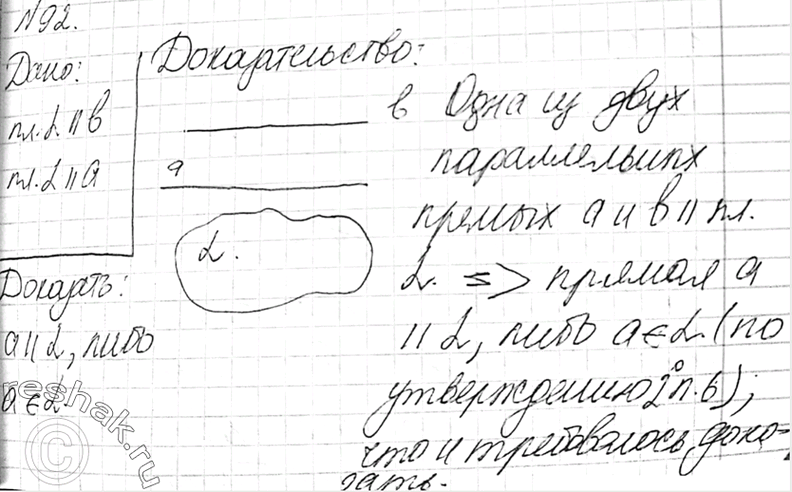 N92.
Дано:
пл. α ∥ в
пл. α ∥ а
Доказать:
а ∥ α, либо
а ∈ α.
Доказательство:
в
а
α.
Одна из двух
параллельных
прямых а и в ∥ пл.
α. => прямая а
∥ α, либо а ∈ α. (по
утверждению 2° п. 6);
что и требовалось дока-
зать.
reshak.ru